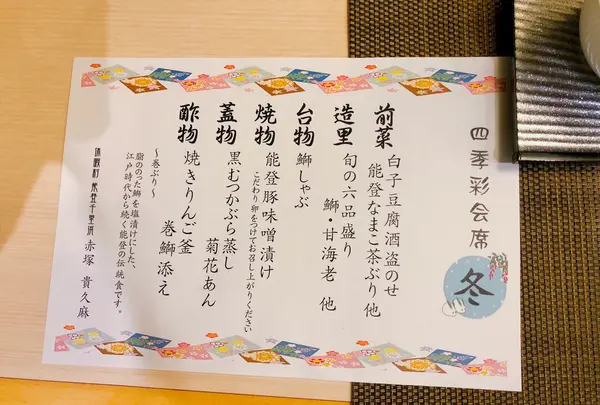 四季彩会席
冬
前菜 白子豆腐酒盗のせ
能登なまこ茶ぶり他
造里 旬の六品盛り
鰤・甘海老 他
台物 鰤しゃぶ
焼物 能登豚味噌漬け
こだわり卵をつけてお召し上がりください
蓋物 黒むつかぶら蒸し
菊花あん
酢物 焼きりんご釜
巻鰤添え
~巻ぶり~
脂ののった鰤を塩漬けにした、
江戸時代から続く能登の伝統食です。
休暇村 能登千里浜 赤塚 貴久麻